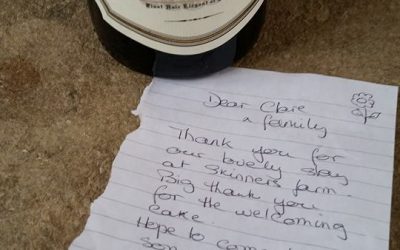 Dear Clare
& family
Thank you for
our lovely stay
at Skinners farm.
Big thank you
for the welcoming
cake
Hope to com
soon